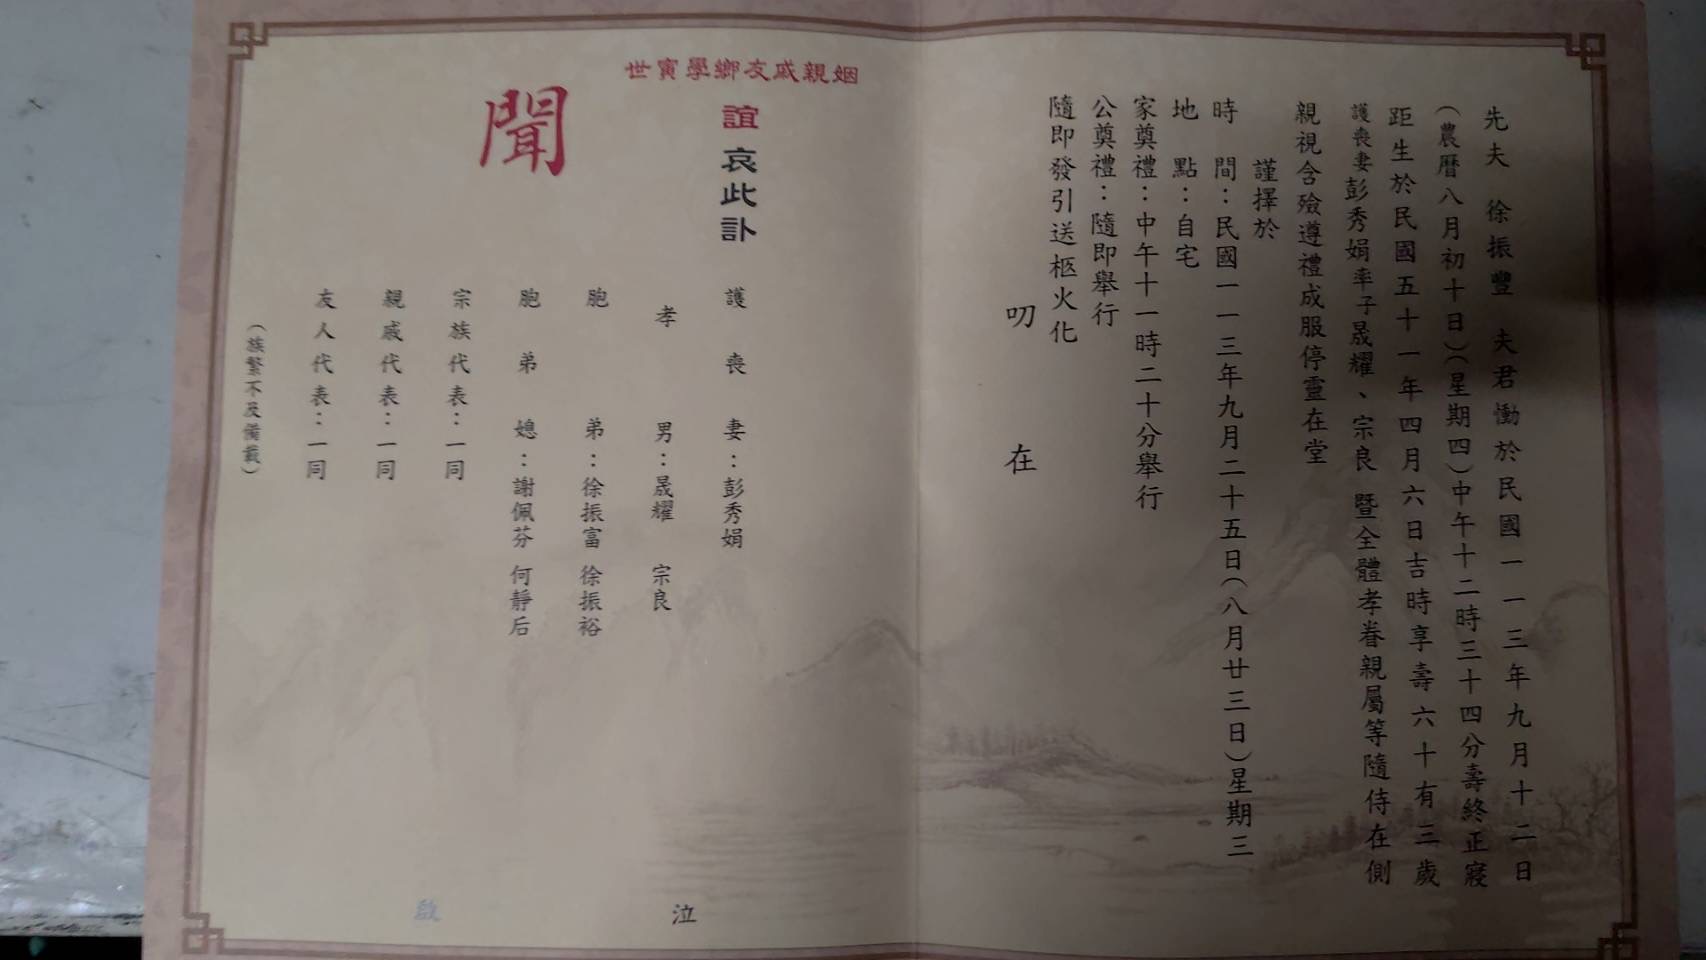 先夫 徐振豐 夫君慟於民國一一三年九月十二日
(農曆八月初十日)(星期四)中午十二時三十四分壽終正寢
距生於民國五十一年四月六日吉時享壽六十有三歲
護喪妻彭秀娟率子晟耀、宗良 暨全體孝眷親屬等隨侍在側
親視含殮遵禮成服停靈在堂
謹擇於
時 間:民國一一三年九月二十五日(八月廿三日)星期三
地 點:自宅
家奠禮:中午十一時二十分舉行
公奠禮:隨即舉行
隨即發引送柩火化
叨 在
世寅學鄉友戚親姻
誼 哀此訃
聞
護喪妻:彭秀娟
孝 男:晟耀 宗良
胞 弟:徐振富 徐振裕
胞弟媳:謝佩芬 何靜后
宗族代表:一同
親戚代表:一同
友人代表:一同
(族繁不及備載)
泣 啟